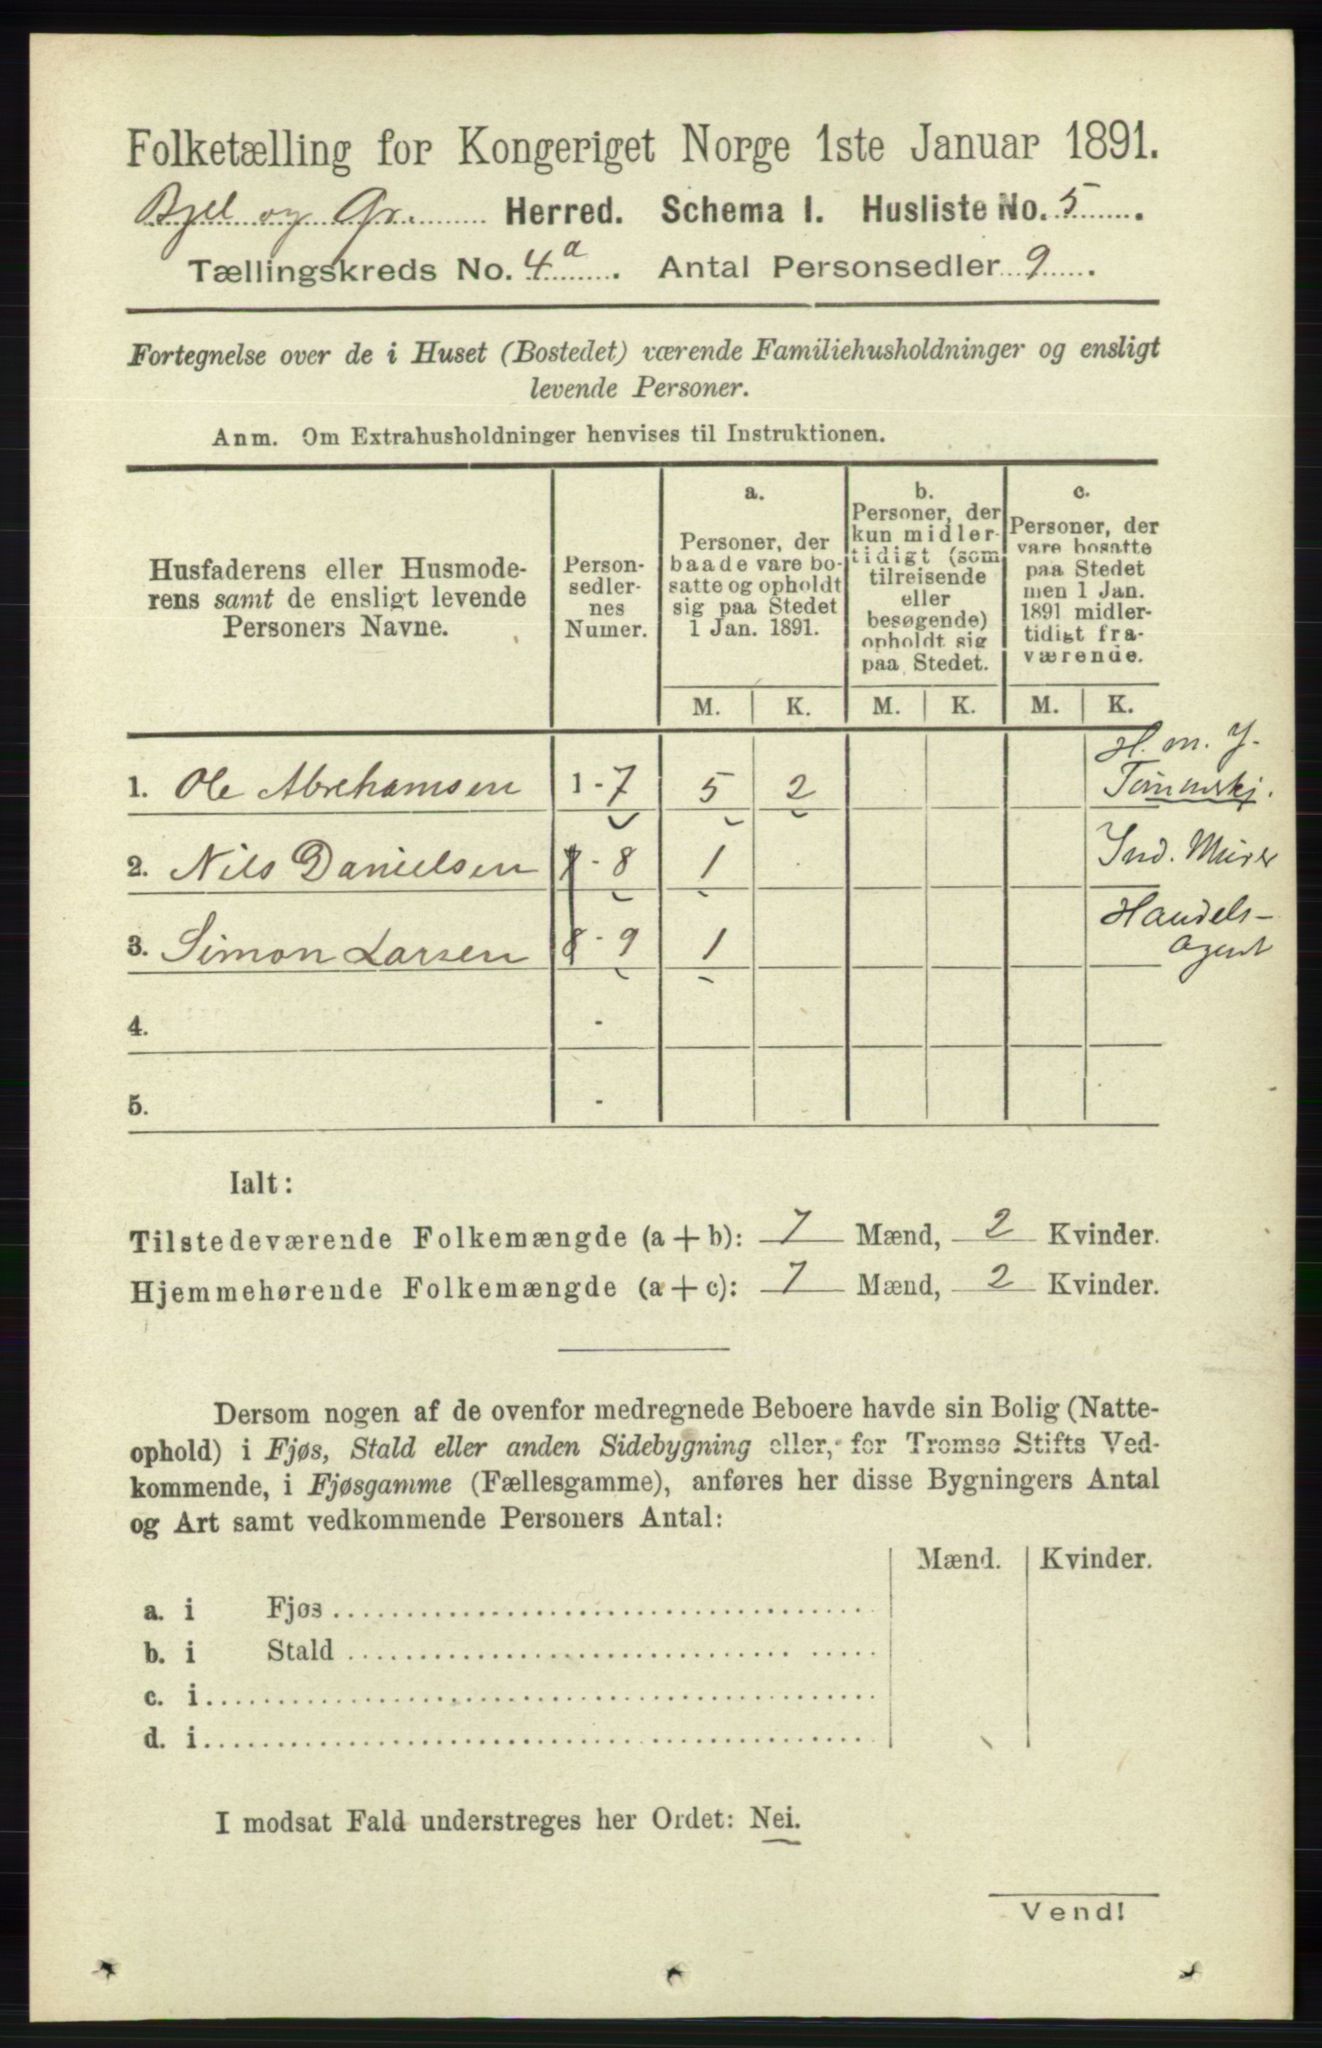 Folketælling for Kongeriget Norge 1ste Januar 1891.
Bjel og Gr. Herred. Schema I. Husliste No. 5.
Tællingskreds No. 4a. Antal Personsedler 9.
Fortegnelse over de i Huset (Bostedet) værende Familiehusholdninger og ensligt
levende Personer.
Anm. Om Extrahusholdninger henvises til Instruktionen.
Husfaderens eller Husmode-
rens samt de ensligt levende
Personers Navne.
Person-
sedler-
nes
Numer.
a.
Personer, der
baade vare bo-
satte og opholdt
sig paa Stedet
1 Jan. 1891.
b.
Personer, der
kun midler-
tidigt (som
tilreisende
eller
besøgende)
opholdt sig
paa Stedet.
c.
Personer, der
vare bosatte
paa Stedet
men 1 Jan.
1891 midler-
tidigt fra-
værende.
M. K. M. K. M. K.
1. Ole Abrehamsen 1 - 7 5 2 H. m. J.
2. Nils Danielsen 8 1 Ind. Murer
3. Simon Larsen 9 1 Handels-
agent
4. -
5. -
Ialt:
Tilstedeværende Folkemængde (a + b): 7 Mænd, 2 Kvinder.
Hjemmehørende Folkemængde (a + c): 7 Mænd, 2 Kvinder.
Dersom nogen af de ovenfor medregnede Beboere havde sin Bolig (Natte-
ophold) i Fjøs, Stald eller anden Sidebygning eller, for Tromsø Stifts Ved-
kommende, i Fjøsgamme (Fællesgamme), anføres her disse Bygningers Antal
og Art samt vedkommende Personers Antal:
Mænd. Kvinder.
a. i Fjøs
b. i Stald
c. i
d. i
I modsat Fald understreges her Ordet: Nei.
Vend!